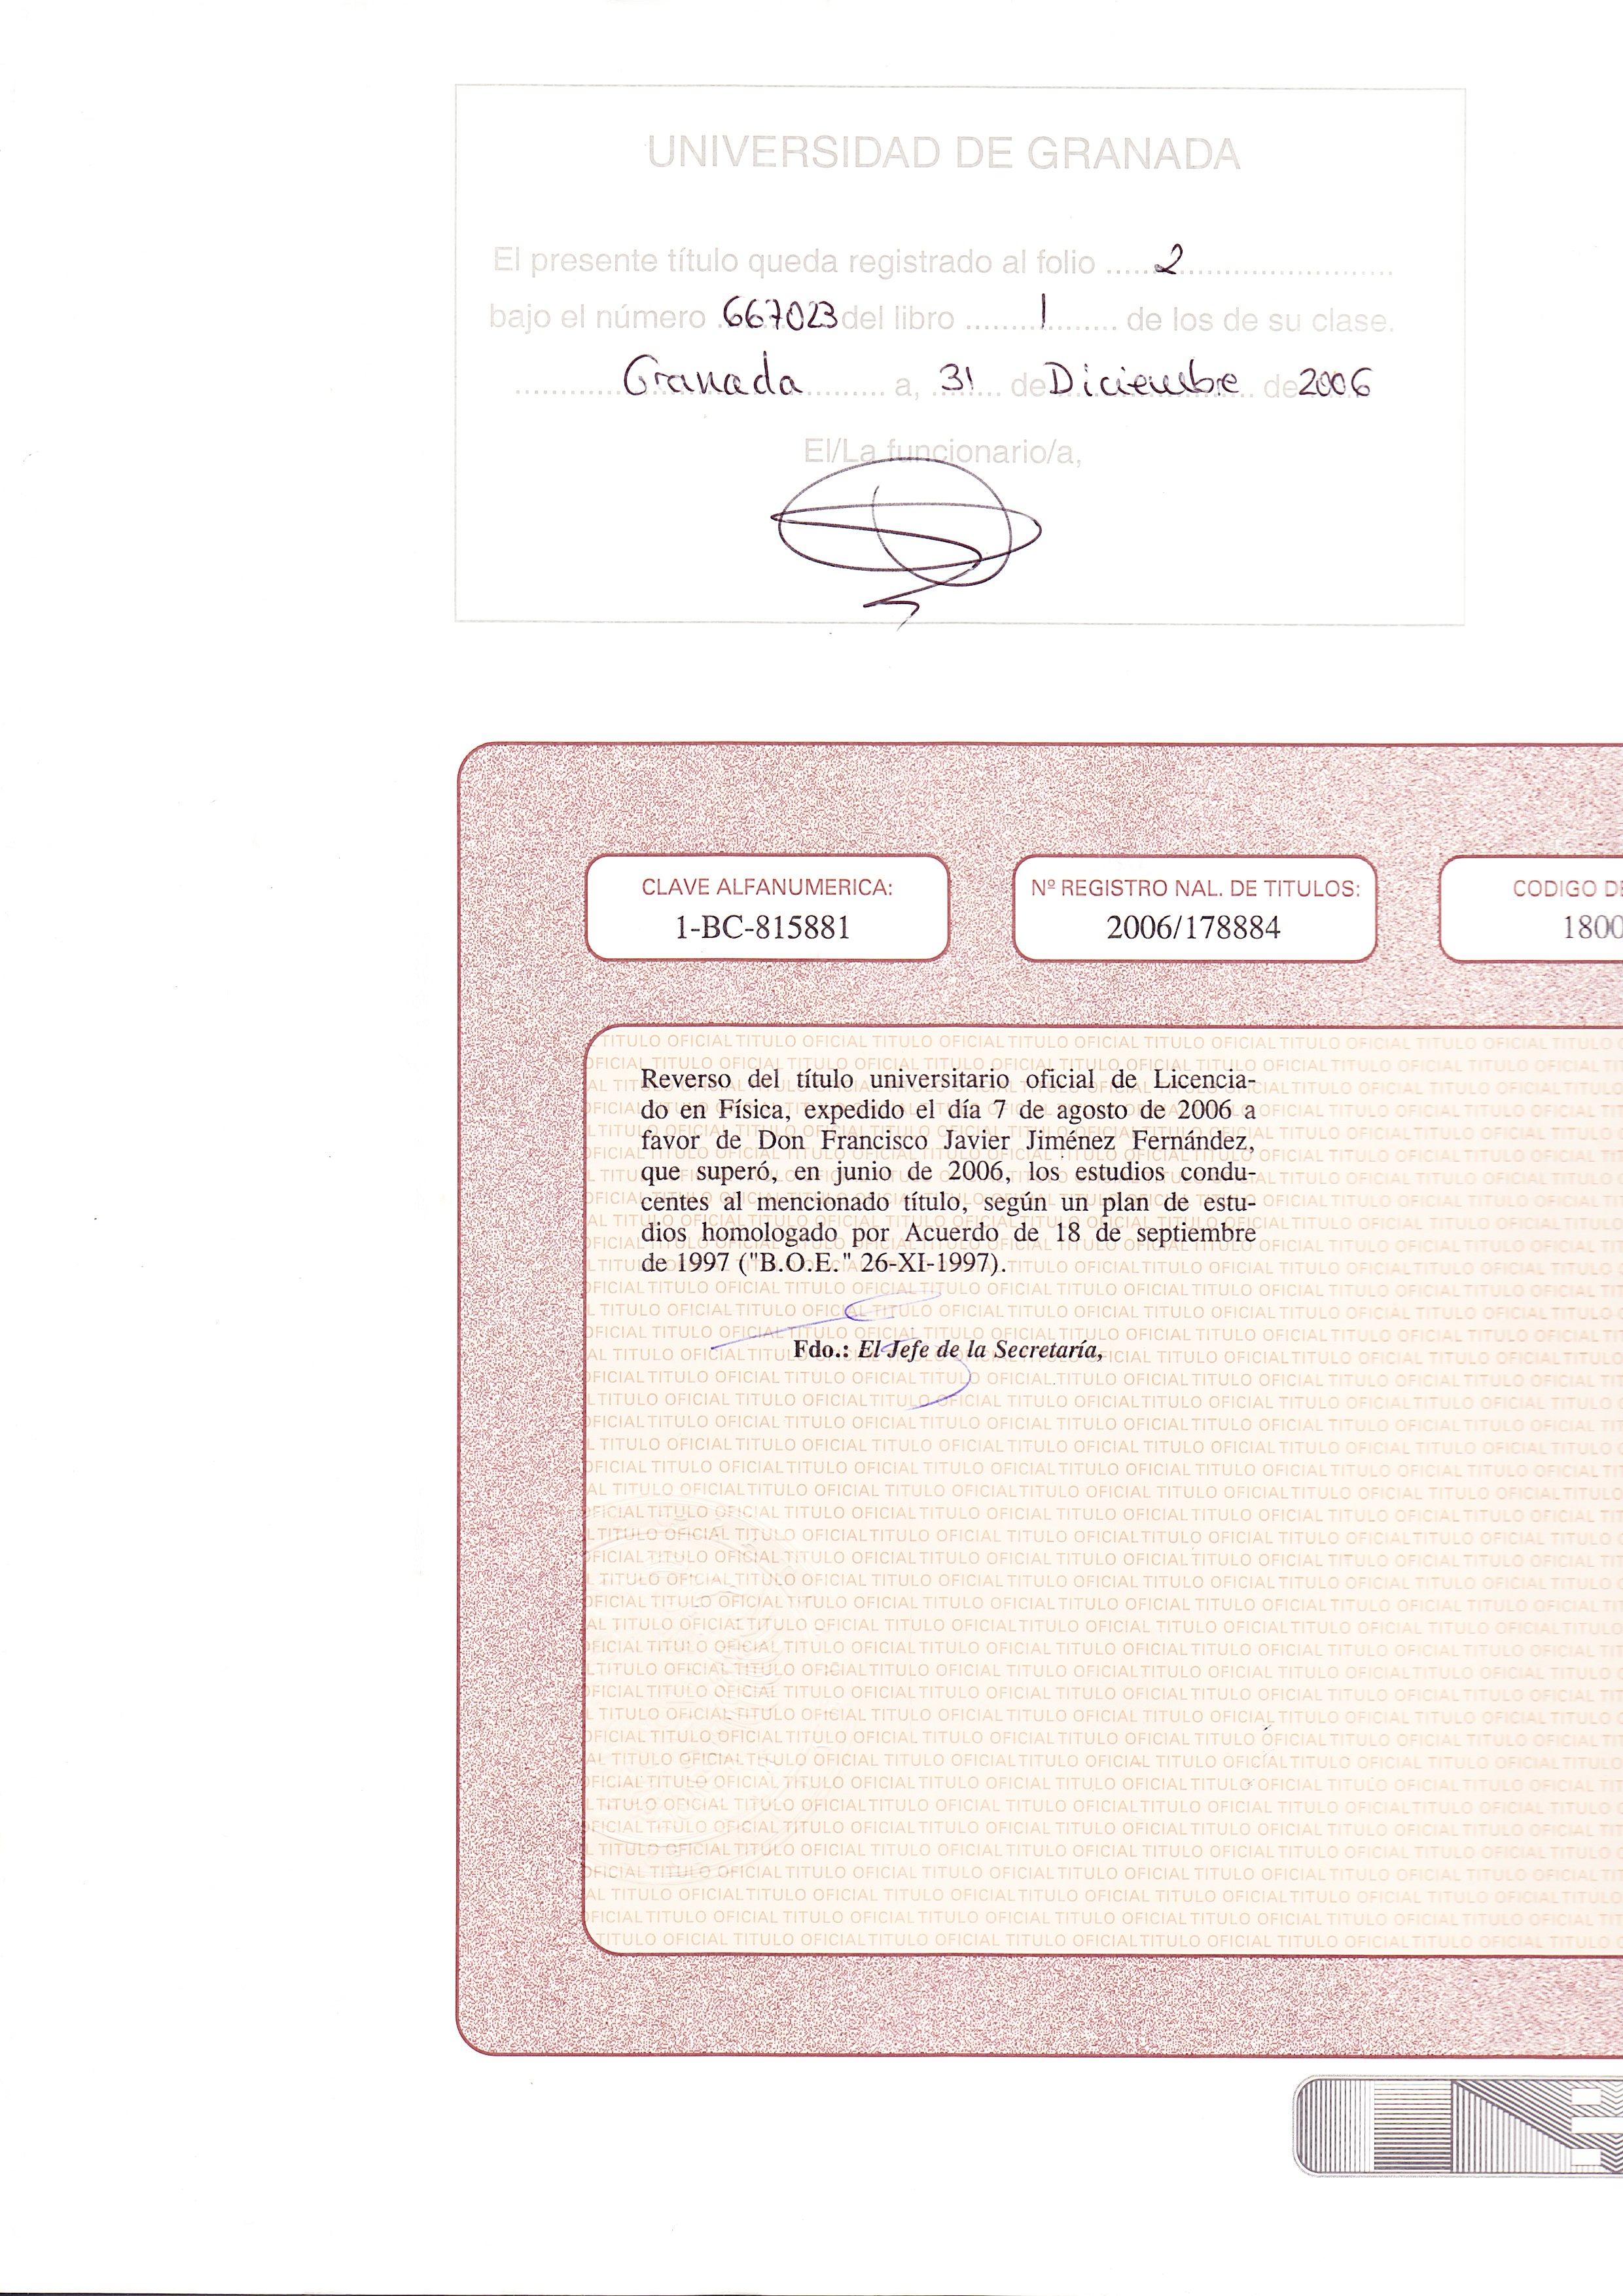 UNIVERSIDAD DE GRANADA
El presente título queda registrado al folio ......2..............................
bajo el número .667023 del libro .........1........ de los de su clase.
..............Granada.......... a, 31 ....... de Diciembre .. de 2006
El/La funcionario/a,
CLAVE ALFANUMERICA:
1-BC-815881
Nº REGISTRO NAL. DE TITULOS:
2006/178884
CODIGO DE
1800
Reverso del título universitario oficial de Licencia-
do en Física, expedido el día 7 de agosto de 2006 a
favor de Don Francisco Javier Jiménez Fernández,
que superó, en junio de 2006, los estudios condu-
centes al mencionado título, según un plan de estu-
dios homologado por Acuerdo de 18 de septiembre
de 1997 ("B.O.E." 26-XI-1997).
Fdo.: El Jefe de la Secretaría,
TITULO OFICIAL TITULO OFICIAL TITULO OFICIAL